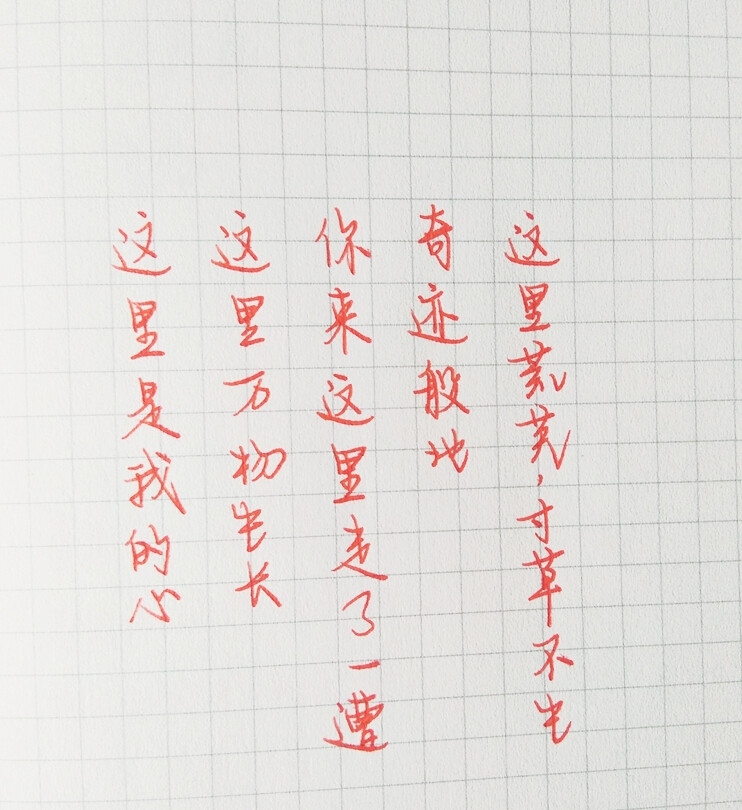 这里荒芜，寸草不生
奇迹般地
你来这里走了一遭
这里万物生长
这里是我的心